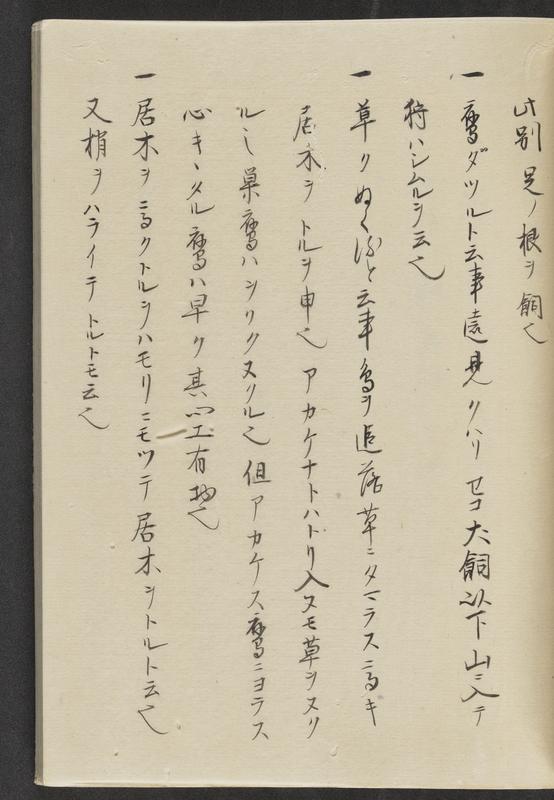 此別足ノ根ヲ飼也
一鷹ダツルト云事遠見クハリセコ犬飼以下山ニ入テ
狩ハシムルヲ云也
一草クぬくると云事鳥ヲ追落草ニタマラスニ高キ
居木ヲトルヲ申也アカケナトハトリ入ヌモ草ヲヌク
ル也巣鷹ハシリクヌクル也但アカケス鷹ニヨラス
心キヽタル鷹ハ早ク其心工有物也
一居木ヲ高クトルヲハモリニモツテ居木ヲトルト云也
又梢ヲハライテトルトモ云也